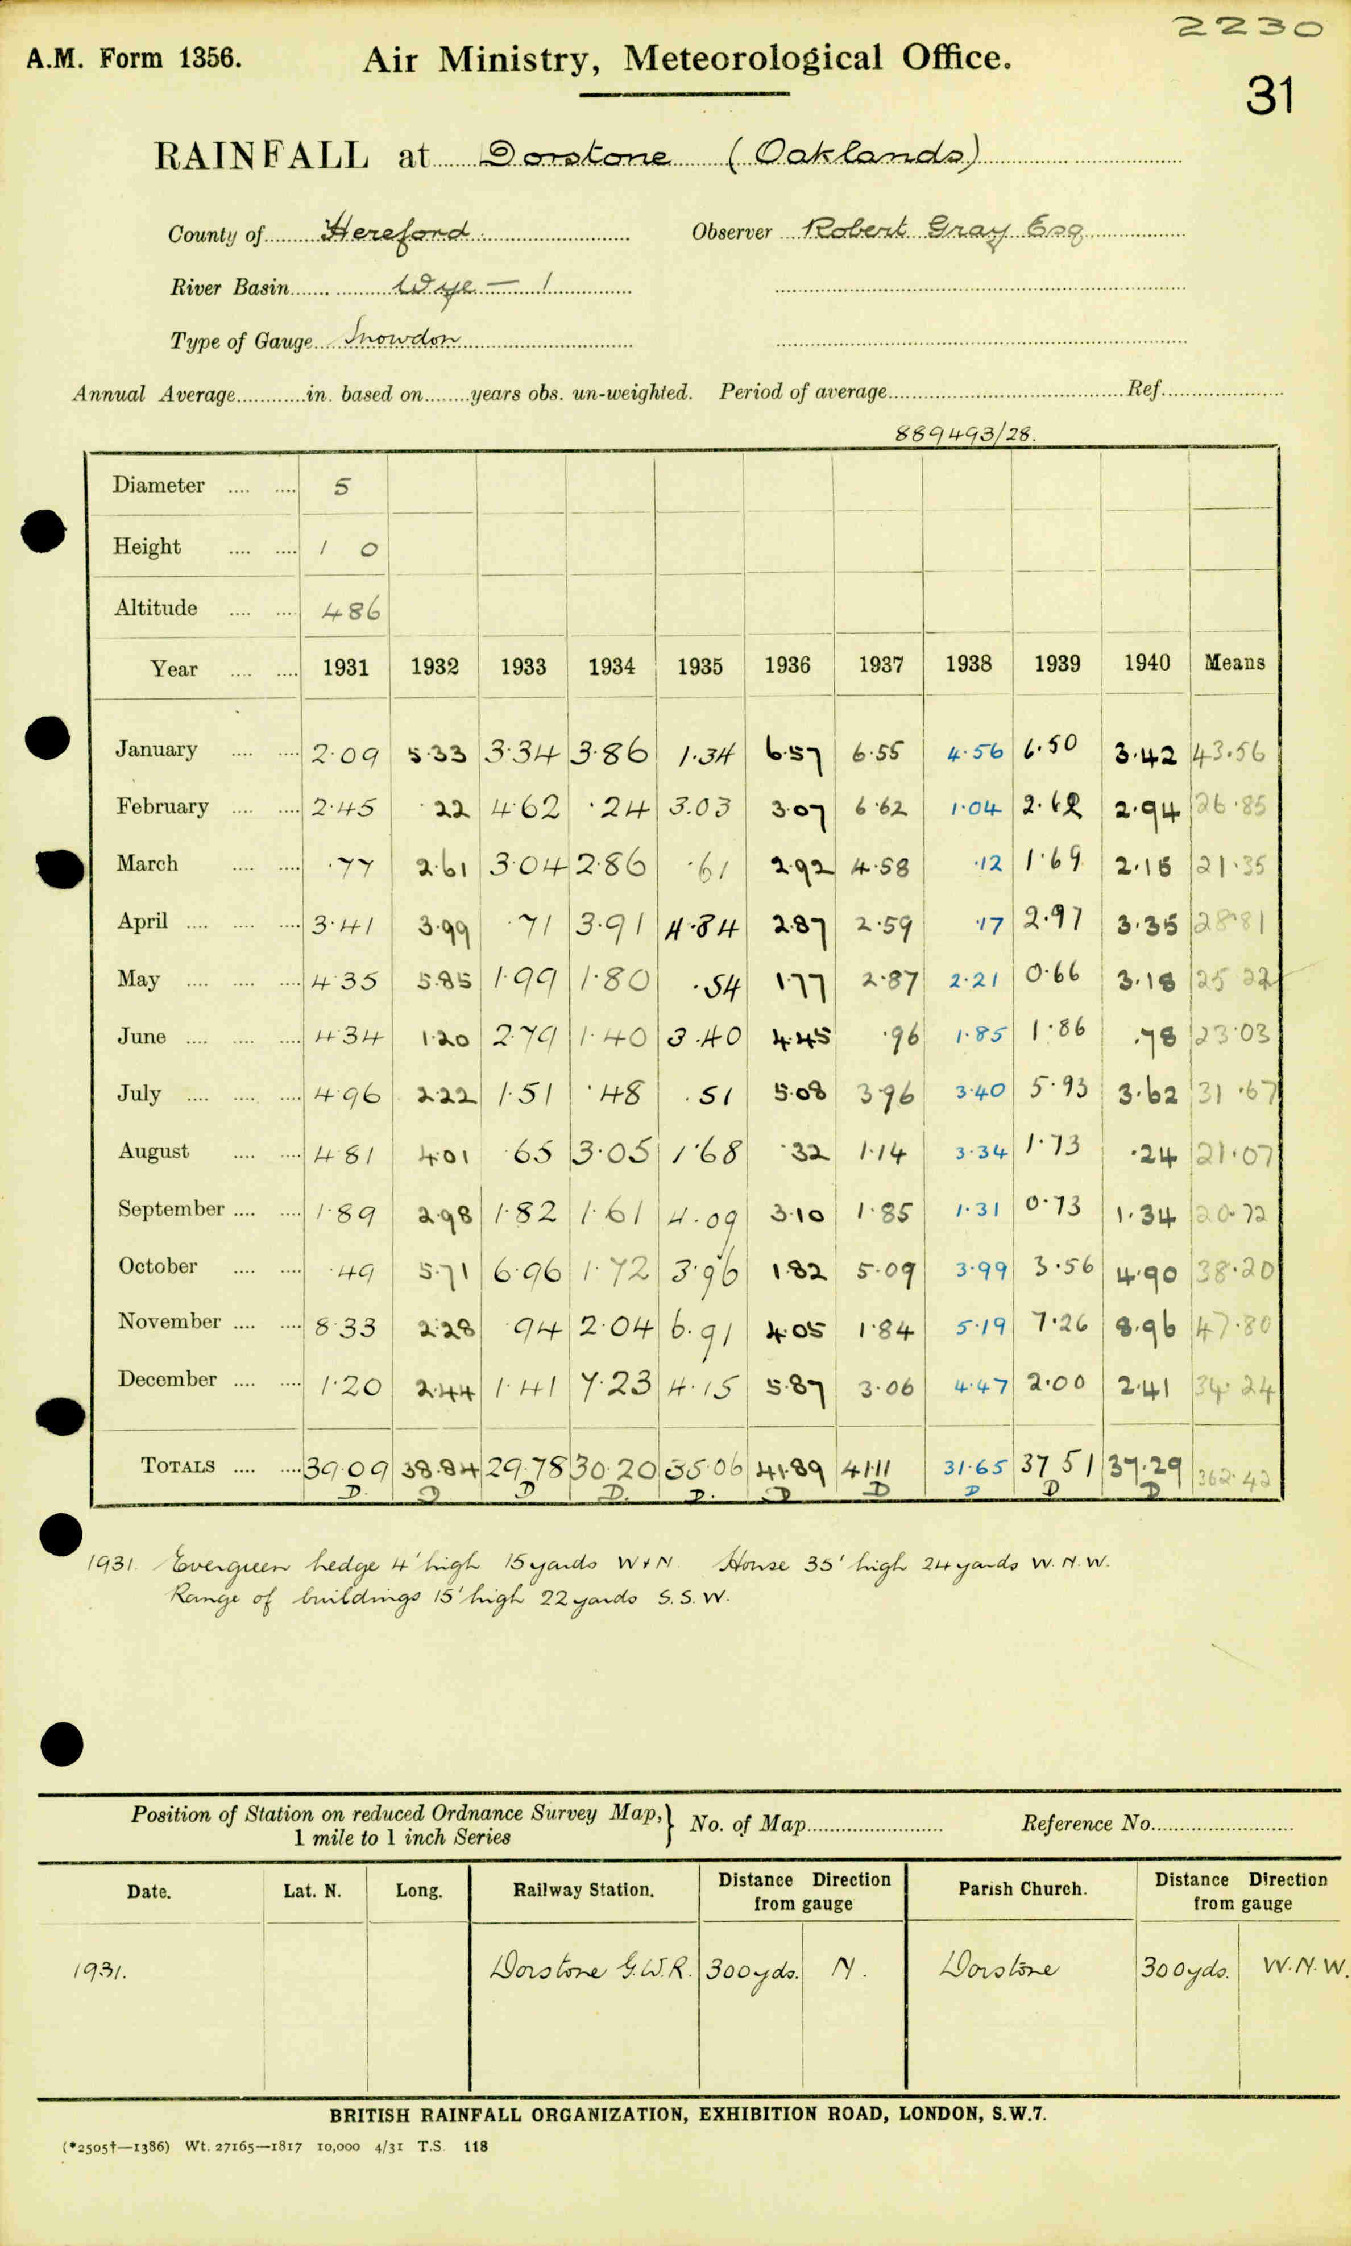 2230
A.M. Form 1356. Air Ministry, Meteorological Office.
31
RAINFALL at Dorstone (Oaklands)
County of Hereford Observer Robert Gray Esq
River Basin Wye — 1
Type of Gauge Snowdon
Annual Average in. based on years obs. un-weighted. Period of average Ref.
889493/28.
Diameter 5
Height 1 0
Altitude 486
Year 1931 1932 1933 1934 1935 1936 1937 1938 1939 1940 Means
January 2.09 5.33 3.34 3.86 1.34 6.57 6.55 4.56 6.50 3.42 43.56
February 2.45 .22 4.62 .24 3.03 3.07 6.62 1.04 2.62 2.94 26.85
March .77 2.61 3.04 2.86 .61 2.92 4.58 .12 1.69 2.15 21.35
April 3.41 3.99 .71 3.91 4.84 2.87 2.59 .17 2.97 3.35 28.81
May 4.35 5.85 1.99 1.80 .54 1.77 2.87 2.21 0.66 3.18 25 22
June 4.34 1.20 2.79 1.40 3.40 4.45 .96 1.85 1.86 .78 23.03
July 4.96 2.22 1.51 .48 .51 5.08 3.96 3.40 5.93 3.62 31.67
August 4.81 4.01 .65 3.05 1.68 .32 1.14 3.34 1.73 .24 21.07
September 1.89 2.98 1.82 1.61 4.09 3.10 1.85 1.31 0.73 1.34 20.72
October .49 5.71 6.96 1.72 3.96 1.82 5.09 3.99 3.56 4.90 38.20
November 8.33 2.28 .94 2.04 6.91 4.05 1.84 5.19 7.26 8.96 47.80
December 1.20 2.44 1.41 7.23 4.15 5.87 3.06 4.47 2.00 2.41 34.24
TOTALS 39.09 38.84 29.78 30.20 35.06 41.89 41.11 31.65 37 51 37.29 362.42
D. D D D. D. D D D D D
1931. Evergreen hedge 4' high 15 yards W + N. House 35' high 24 yards W.N.W.
Range of buildings 15' high 22 yards S.S.W.
Position of Station on reduced Ordnance Survey Map, 1 mile to 1 inch Series } No. of Map Reference No.
Date. Lat. N. Long. Railway Station. Distance Direction from gauge Parish Church. Distance Direction from gauge
1931. Dorstone G.W.R. 300yds. N. Dorstone 300yds. W.N.W.
BRITISH RAINFALL ORGANIZATION, EXHIBITION ROAD, LONDON, S.W.7.
(*2505†—1386) Wt. 27165—1817 10,000 4/31 T.S. 118